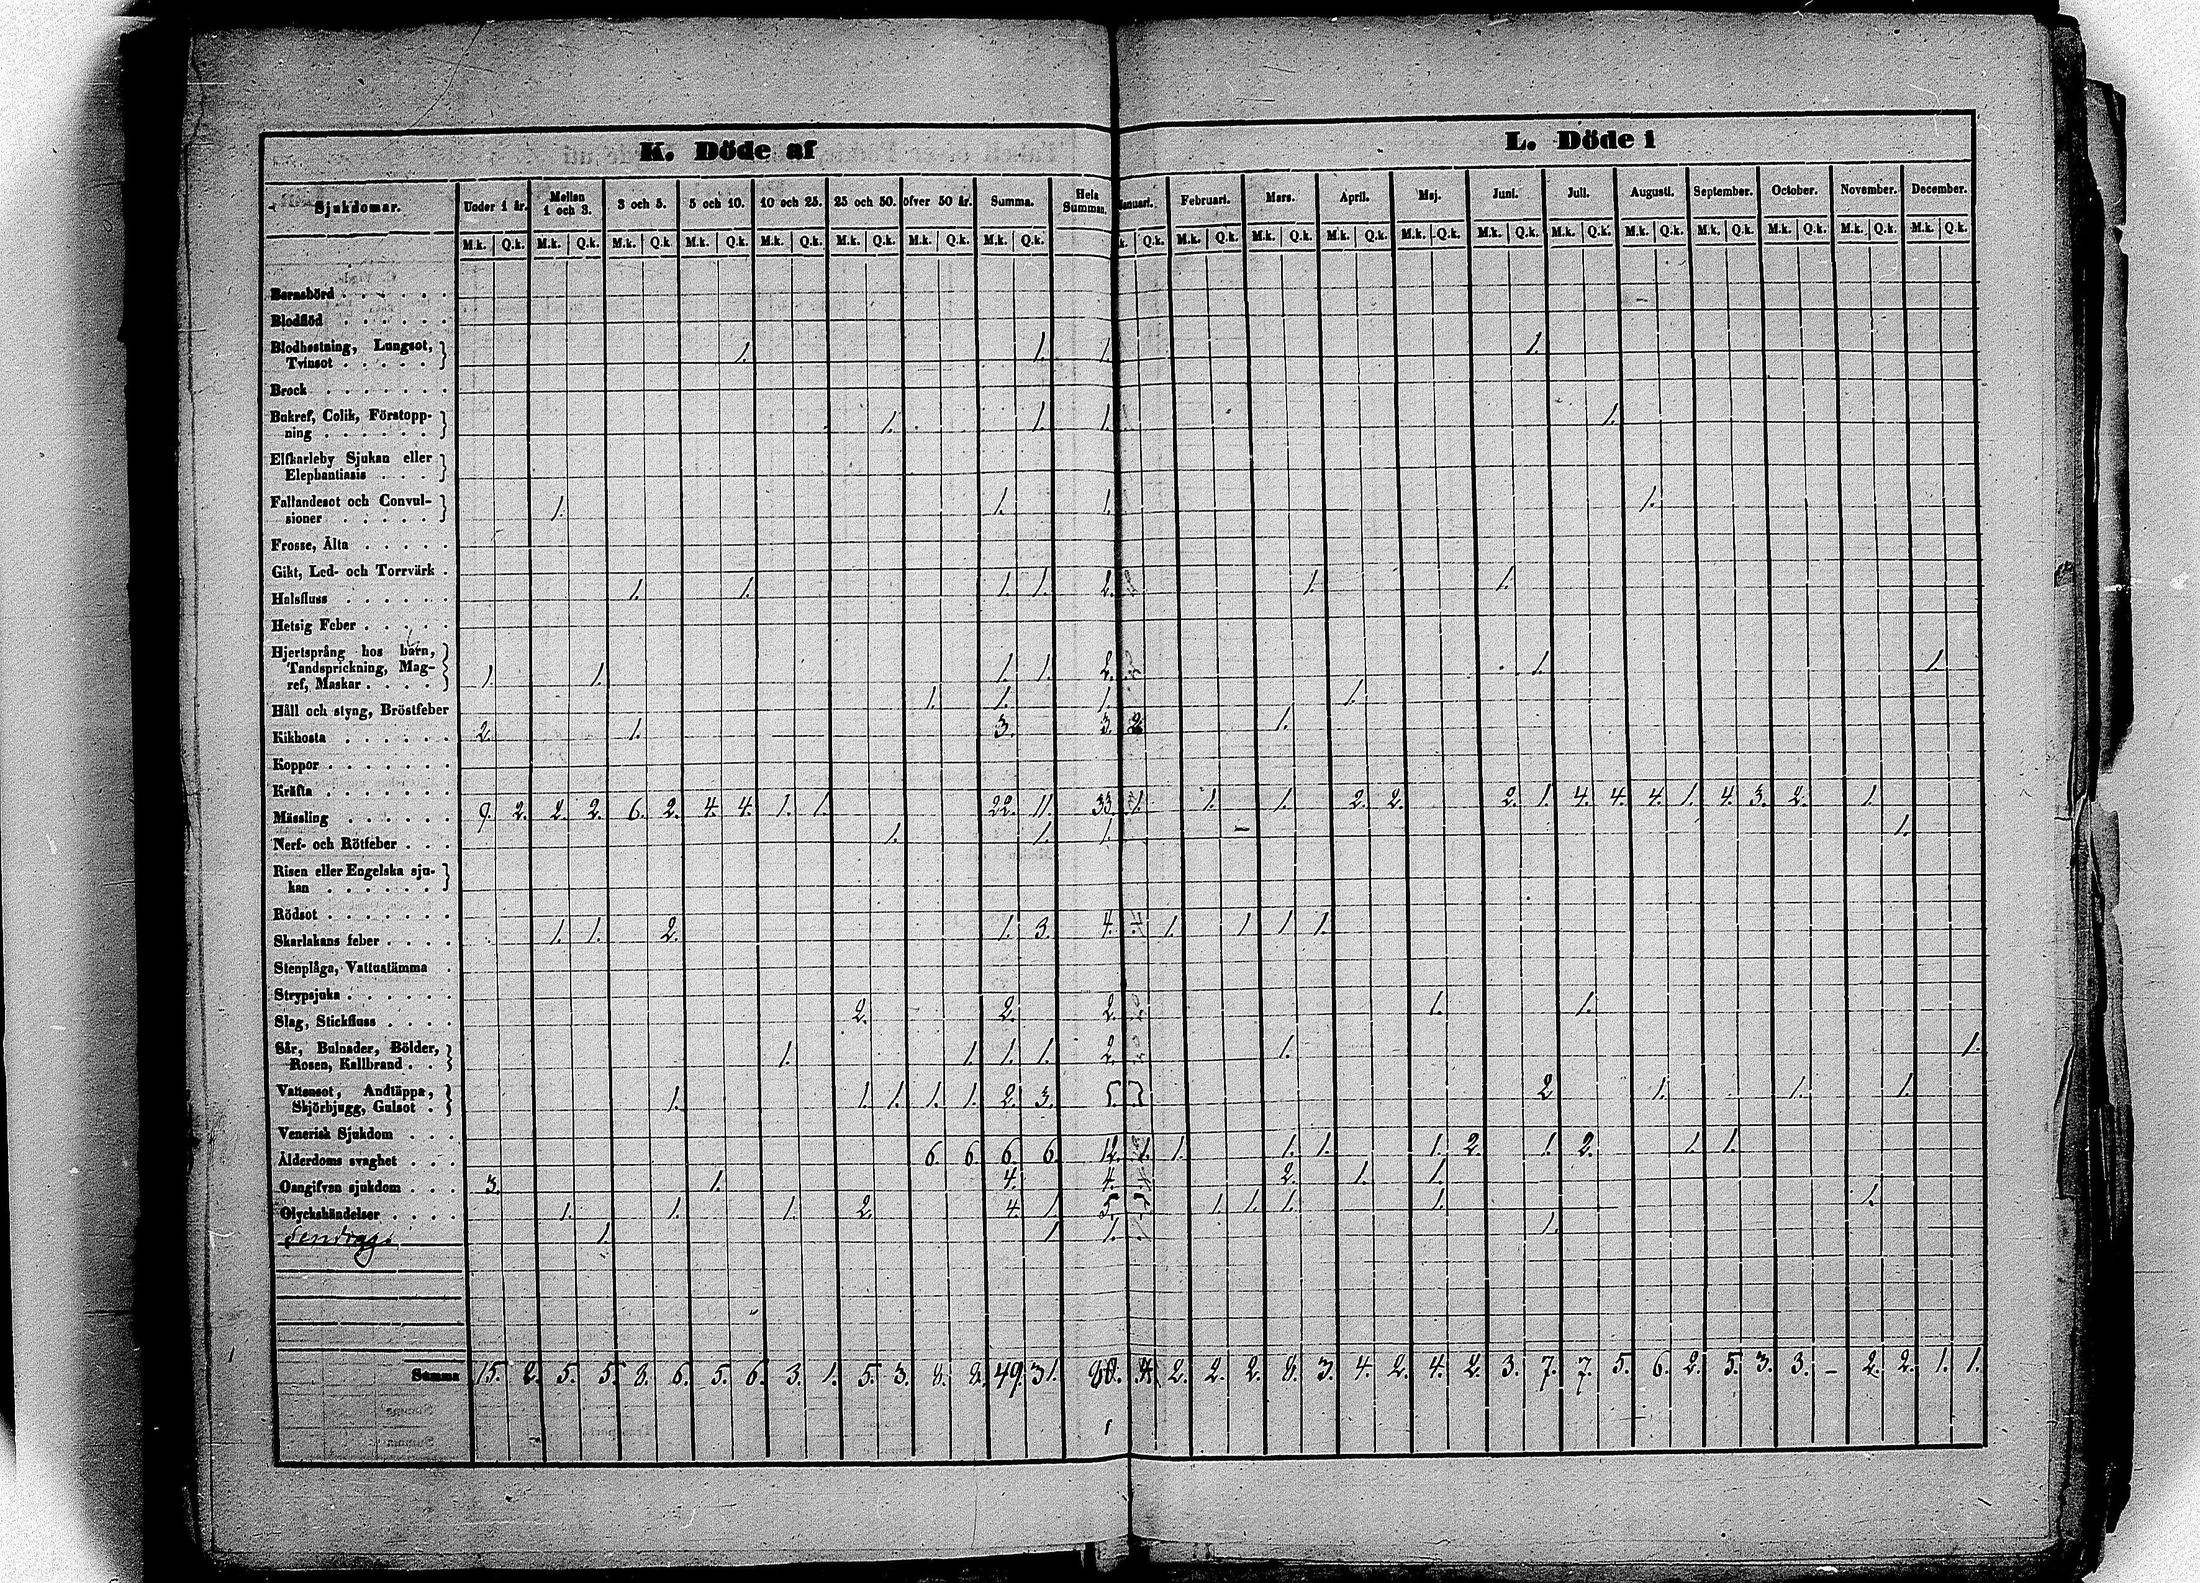 K. Döde af
L. Döde i
Sjukdomar. Under 1 år. Mellan 1 och 3. 3 och 5. 5 och 10. 10 och 25. 25 och 50. öfver 50 år. Summa. Hela Summan. Januari. Februari. Mars. April. Maj. Juni. Juli. Augusti. September. October. November. December.
M.k. Q.k. M.k. Q.k. M.k. Q.k. M.k. Q.k. M.k. Q.k. M.k. Q.k. M.k. Q.k. M.k. Q.k. k. Q.k. M.k. Q.k. M.k. Q.k. M.k. Q.k. M.k. Q.k. M.k. Q.k. M.k. Q.k. M.k. Q.k. M.k. Q.k. M.k. Q.k. M.k. Q.k. M.k. Q.k.
Barnsbörd
Blodflöd
Blodhostning, Lungsot,
Tvinsot 1. 1. 1. 1.
Brock
Bukref, Colik, Förstopp-
ning 1. 1. 1. 1.
Elfkarleby Sjukan eller
Elephantiasis
Fallandesot och Convul-
sioner 1. 1. 1. 1.
Frosse, Älta
Gikt, Led- och Torrvärk
Halsfluss 1. 1. 1. 1. 2. 1. 1.
Hetsig Feber
Hjertsprång hos barn,
Tandsprickning, Mag-
ref, Maskar 1. 1. 1. 1. 2. 1. 1.
Håll och styng, Bröstfeber 1. 1. 1. 1.
Kikhosta 2. 1. 3. 3. 2. 1.
Koppor
Kräfta
Mässling 9. 2. 2. 2. 6. 2. 4. 4. 1. 1. 22. 11. 33. 1. 1. 1. 2. 2. 2. 1. 4. 4. 4. 1. 4. 3. 2. 1.
Nerf- och Rötfeber 1. 1. 1. 1.
Risen eller Engelska sju-
kan
Rödsot
Skarlakans feber 1. 1. 2. 1. 3. 4. 1. 1. 1. 1.
Stenplåga, Vattustämma
Strypsjuka
Slag, Stickfluss 2. 2. 2. 1. 1.
Sår, Bulnader, Bölder,
Rosen, Kallbrand 1. 1. 1. 1. 2. 1. 1.
Vattensot, Andtäppa,
Skjörbjugg, Gulsot 1. 1. 1. 1. 1. 2. 3. 5. 2 1. 1. 1.
Venerisk Sjukdom
Ålderdoms svaghet 6. 6. 6. 6. 12. 1. 1. 1. 1. 1. 2. 1. 2. 1. 1.
Oangifven sjukdom 3. 1. 4. 4. 2. 1. 1.
Olyckshändelser 1. 1. 1. 2. 4. 1. 5. 1. 1. 1. 1. 1.
Sendrag 1. 1 1. 1.
Summa 15. 2. 5. 5. 8. 6. 5. 6. 3. 1. 5. 3. 8. 8. 49. 31. 80. 2. 2. 2. 8. 3. 4. 2. 4. 2. 3. 7. 7. 5. 6. 2. 5. 3. 3. – 2. 2. 1. 1.